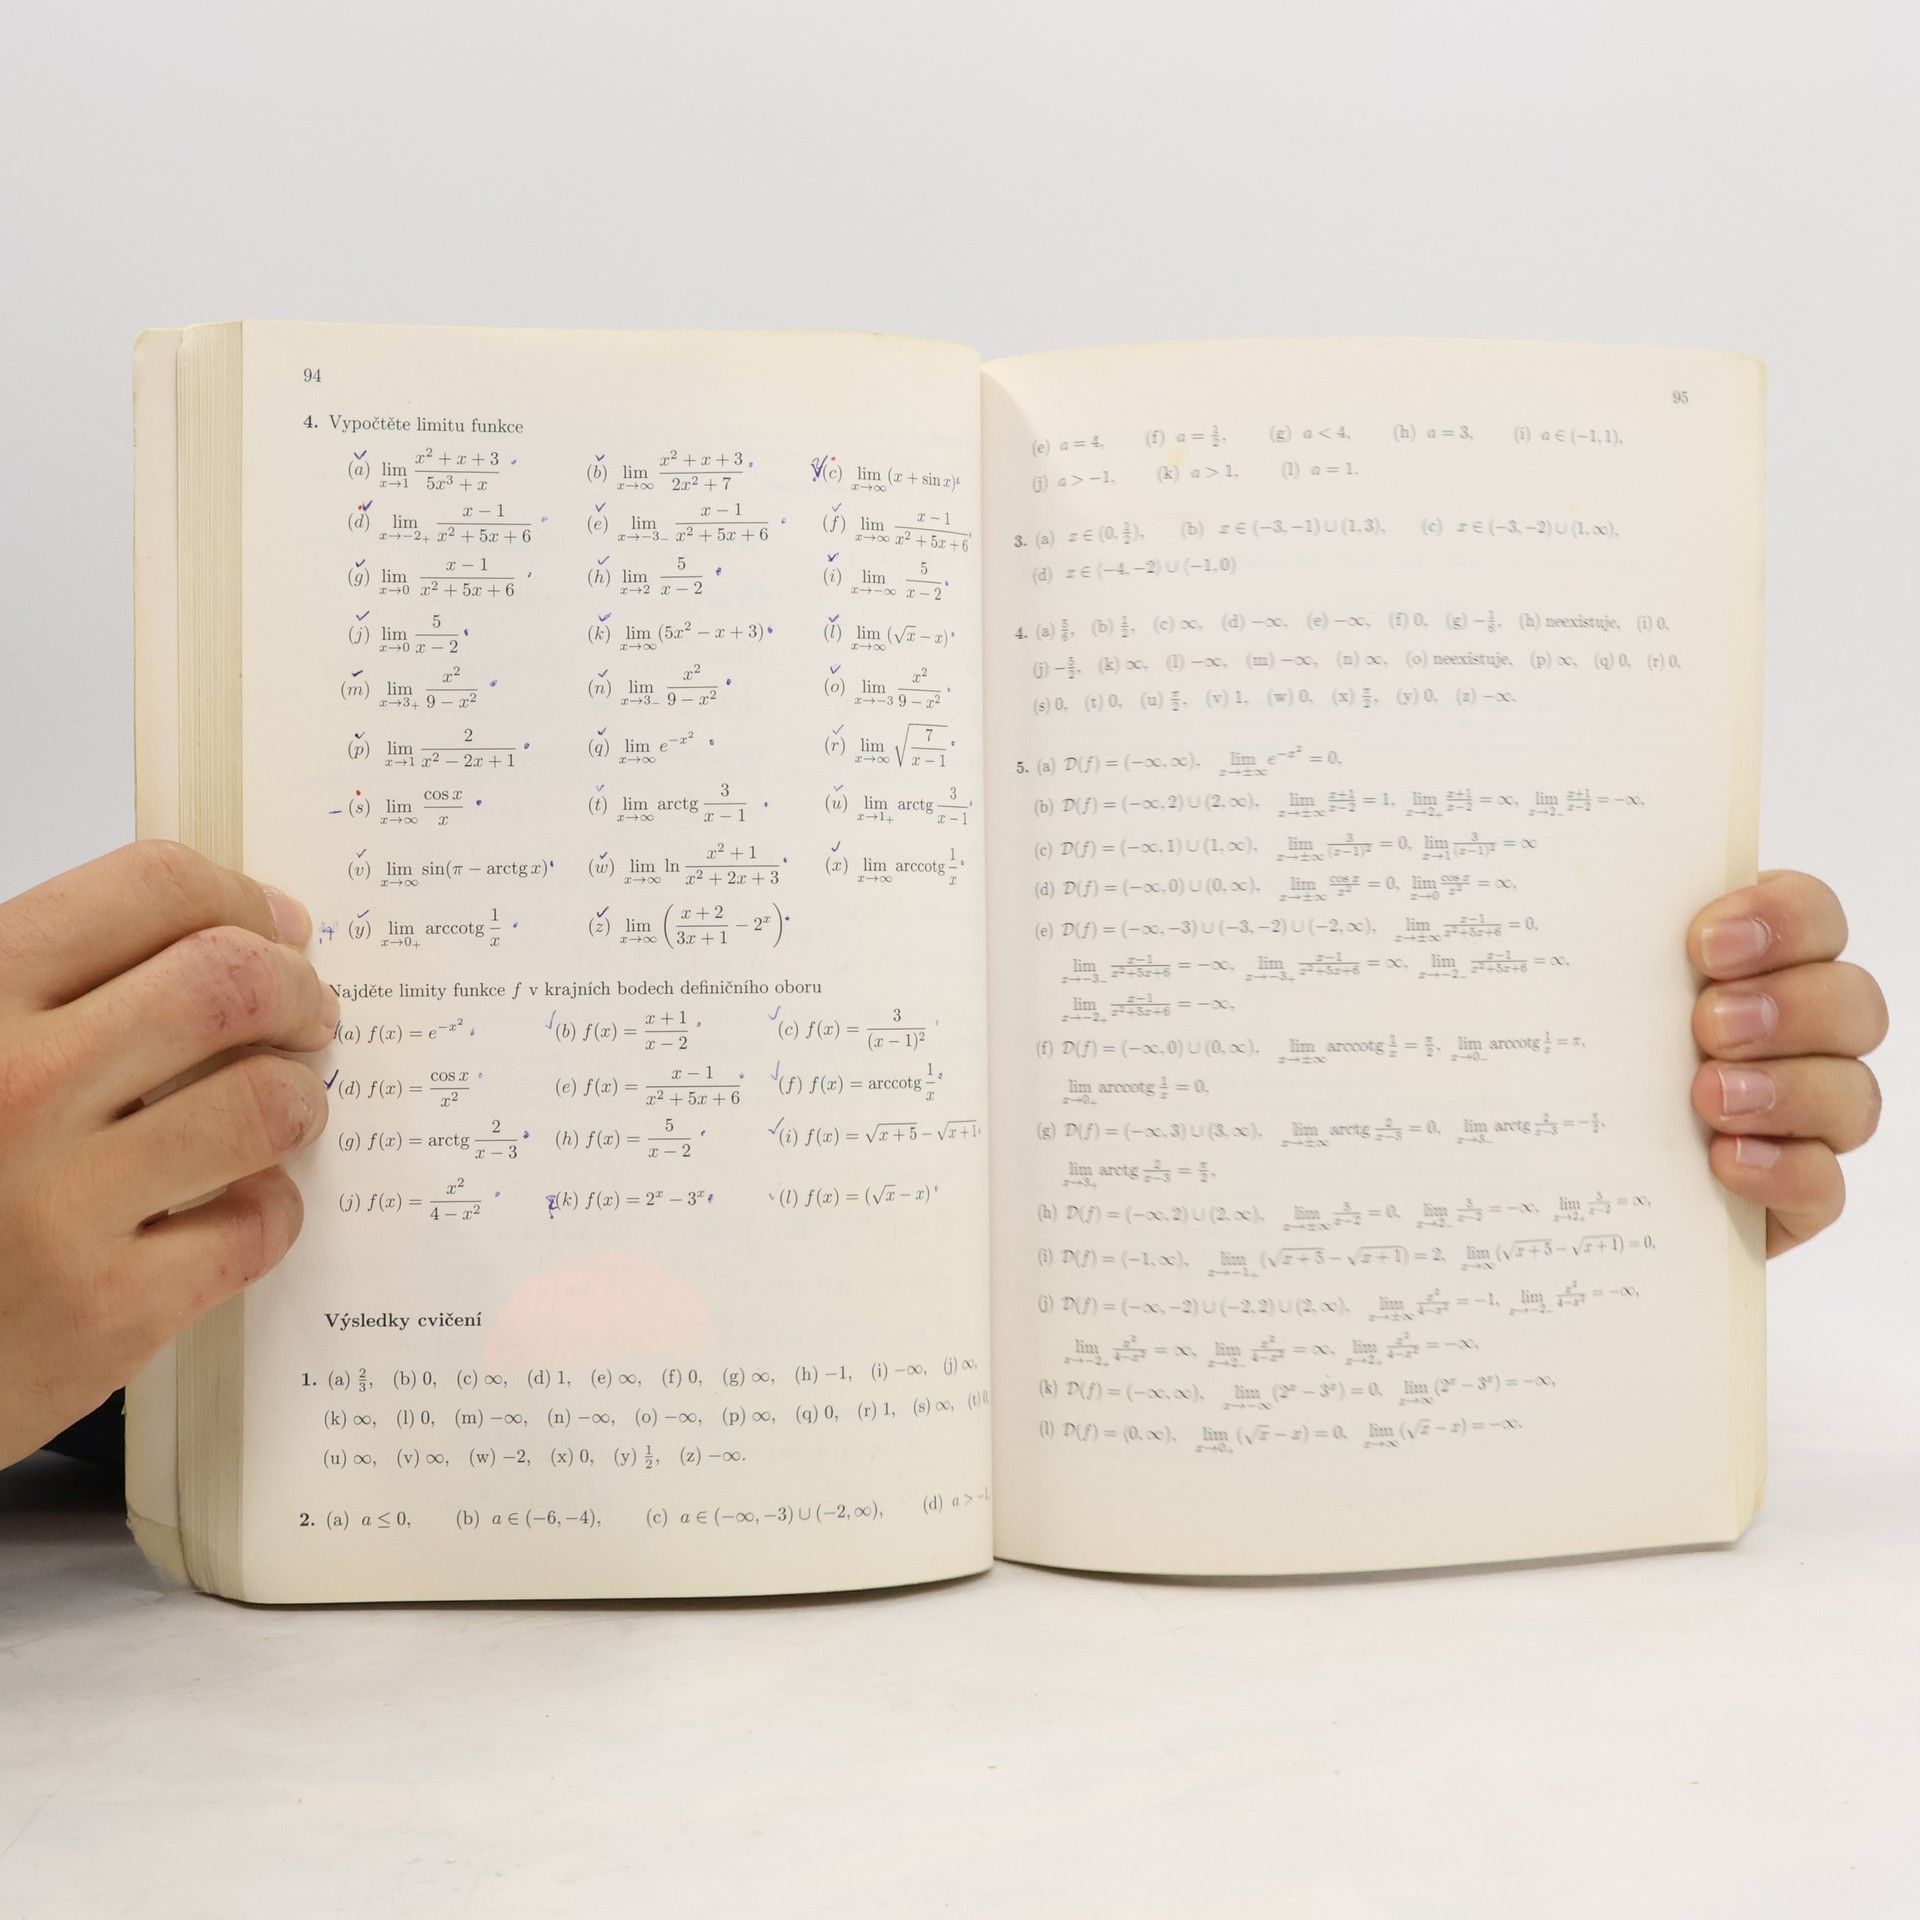 94
4. Vypočtěte limitu funkce
(a) lim x→1 (x² + x + 3)/(5x³ + x) (b) lim x→∞ (x² + x + 3)/(2x² + 7) (c) lim x→∞ (x + sin x)
(d) lim x→−2₊ (x − 1)/(x² + 5x + 6) (e) lim x→−3₋ (x − 1)/(x² + 5x + 6) (f) lim x→∞ (x − 1)/(x² + 5x + 6)
(g) lim x→0 (x − 1)/(x² + 5x + 6) (h) lim x→2 5/(x − 2) (i) lim x→−∞ 5/(x − 2)
(j) lim x→0 5/(x − 2) (k) lim x→∞ (5x² − x + 3) (l) lim x→∞ (√x − x)
(m) lim x→3₊ x²/(9 − x²) (n) lim x→3₋ x²/(9 − x²) (o) lim x→−3 x²/(9 − x²)
(p) lim x→1 2/(x² − 2x + 1) (q) lim x→∞ e^(−x²) (r) lim x→∞ √(7/(x − 1))
(s) lim x→∞ cos x/x (t) lim x→∞ arctg 3/(x − 1) (u) lim x→1₊ arctg 3/(x − 1)
(v) lim x→∞ sin(π − arctg x) (w) lim x→∞ ln (x² + 1)/(x² + 2x + 3) (x) lim x→∞ arccotg 1/x
(y) lim x→0₊ arccotg 1/x (z) lim x→∞ ((x + 2)/(3x + 1) − 2^x)
Najděte limity funkce f v krajních bodech definičního oboru
(a) f(x) = e^(−x²) (b) f(x) = (x + 1)/(x − 2) (c) f(x) = 3/(x − 1)²
(d) f(x) = cos x/x² (e) f(x) = (x − 1)/(x² + 5x + 6) (f) f(x) = arccotg 1/x
(g) f(x) = arctg 2/(x − 3) (h) f(x) = 5/(x − 2) (i) f(x) = √(x + 5) − √(x + 1)
(j) f(x) = x²/(4 − x²) (k) f(x) = 2^x − 3^x (l) f(x) = (√x − x)
Výsledky cvičení
1. (a) 2/3, (b) 0, (c) ∞, (d) 1, (e) ∞, (f) 0, (g) ∞, (h) −1, (i) −∞, (j) ∞,
(k) ∞, (l) 0, (m) −∞, (n) −∞, (o) −∞, (p) ∞, (q) 0, (r) 1, (s) ∞, (t) 0
(u) ∞, (v) ∞, (w) −2, (x) 0, (y) 1/2, (z) −∞.
2. (a) a ≤ 0, (b) a ∈ (−6, −4), (c) a ∈ (−∞, −3) ∪ (−2, ∞), (d) a > −1,
95
(e) a = 4, (f) a = 1/2, (g) a < 4, (h) a = 3, (i) a ∈ (−1, 1),
(j) a > −1, (k) a > 1, (l) a = 1.
3. (a) x ∈ (0, 1/2), (b) x ∈ (−3, −1) ∪ (1, 3), (c) x ∈ (−3, −2) ∪ (1, ∞),
(d) x ∈ (−4, −2) ∪ (−1, 0)
4. (a) 5/6, (b) 1/2, (c) ∞, (d) −∞, (e) −∞, (f) 0, (g) −1/6, (h) neexistuje, (i) 0,
(j) −5/2, (k) ∞, (l) −∞, (m) −∞, (n) ∞, (o) neexistuje, (p) ∞, (q) 0, (r) 0,
(s) 0, (t) 0, (u) π/2, (v) 1, (w) 0, (x) π/2, (y) 0, (z) −∞.
5. (a) D(f) = (−∞, ∞), lim x→±∞ e^(−x²) = 0,
(b) D(f) = (−∞, 2) ∪ (2, ∞), lim x→±∞ (x+1)/(x−2) = 1, lim x→2₊ (x+1)/(x−2) = ∞, lim x→2₋ (x+1)/(x−2) = −∞,
(c) D(f) = (−∞, 1) ∪ (1, ∞), lim x→±∞ 3/(x−1)² = 0, lim x→1 3/(x−1)² = ∞
(d) D(f) = (−∞, 0) ∪ (0, ∞), lim x→±∞ cos x/x² = 0, lim x→0 cos x/x² = ∞,
(e) D(f) = (−∞, −3) ∪ (−3, −2) ∪ (−2, ∞), lim x→±∞ (x−1)/(x²+5x+6) = 0,
lim x→−3₋ (x−1)/(x²+5x+6) = −∞, lim x→−3₊ (x−1)/(x²+5x+6) = ∞, lim x→−2₋ (x−1)/(x²+5x+6) = ∞,
lim x→−2₊ (x−1)/(x²+5x+6) = −∞,
(f) D(f) = (−∞, 0) ∪ (0, ∞), lim x→±∞ arccotg 1/x = π/2, lim x→0₋ arccotg 1/x = π,
lim x→0₊ arccotg 1/x = 0,
(g) D(f) = (−∞, 3) ∪ (3, ∞), lim x→±∞ arctg 2/(x−3) = 0, lim x→3₋ arctg 2/(x−3) =
lim x→3₊ arctg 2/(x−3) = π/2,
(h) D(f) = (−∞, 2) ∪ (2, ∞), lim x→±∞ 3/(x−2) = 0, lim x→2₋ 3/(x−2) = −∞, lim x→2₊ 3/(x−2) = ∞,
(i) D(f) = (−1, ∞), lim (√(x+5) − √(x+1)) = 2, lim x→∞ (√(x+5) − √(x+1)) = 0,
(j) D(f) = (−∞, −2) ∪ (−2, 2) ∪ (2, ∞), lim x→±∞ x²/(4−x²) = −1, lim x→−2₋ x²/(4−x²) = −∞,
lim x→−2₊ x²/(4−x²) = ∞, lim x→2₋ x²/(4−x²) = ∞, lim x→2₊ x²/(4−x²) = −∞,
(k) D(f) = (−∞, ∞), lim x→−∞ (2^x − 3^x) = 0, lim x→∞ (2^x − 3^x) = −∞,
(l) D(f) = ⟨0, ∞), lim x→0₊ (√x − x) = 0, lim x→∞ (√x − x) = −∞.